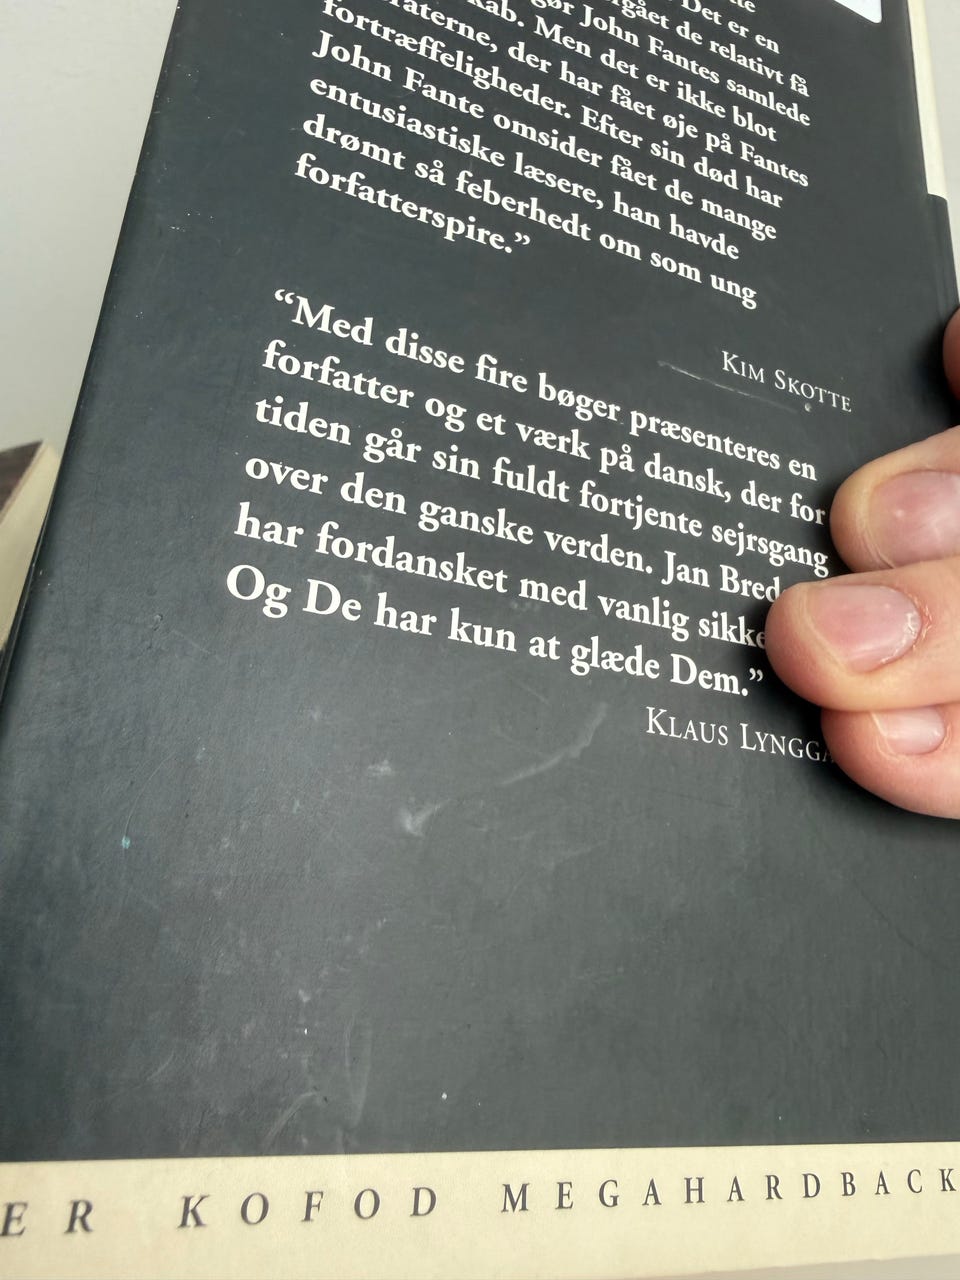 Det er en
gået de relativt få
gør John Fantes samlede
kab. Men det er ikke blot
raterne, der har fået øje på Fantes
fortræffeligheder. Efter sin død har
John Fante omsider fået de mange
entusiastiske læsere, han havde
drømt så feberhedt om som ung
forfatterspire.”
KIM SKOTTE
“Med disse fire bøger præsenteres en
forfatter og et værk på dansk, der for
tiden går sin fuldt fortjente sejrsgang
over den ganske verden. Jan Bred
har fordansket med vanlig sikke
Og De har kun at glæde Dem.”
KLAUS LYNGGA
ER KOFOD MEGAHARDBACK